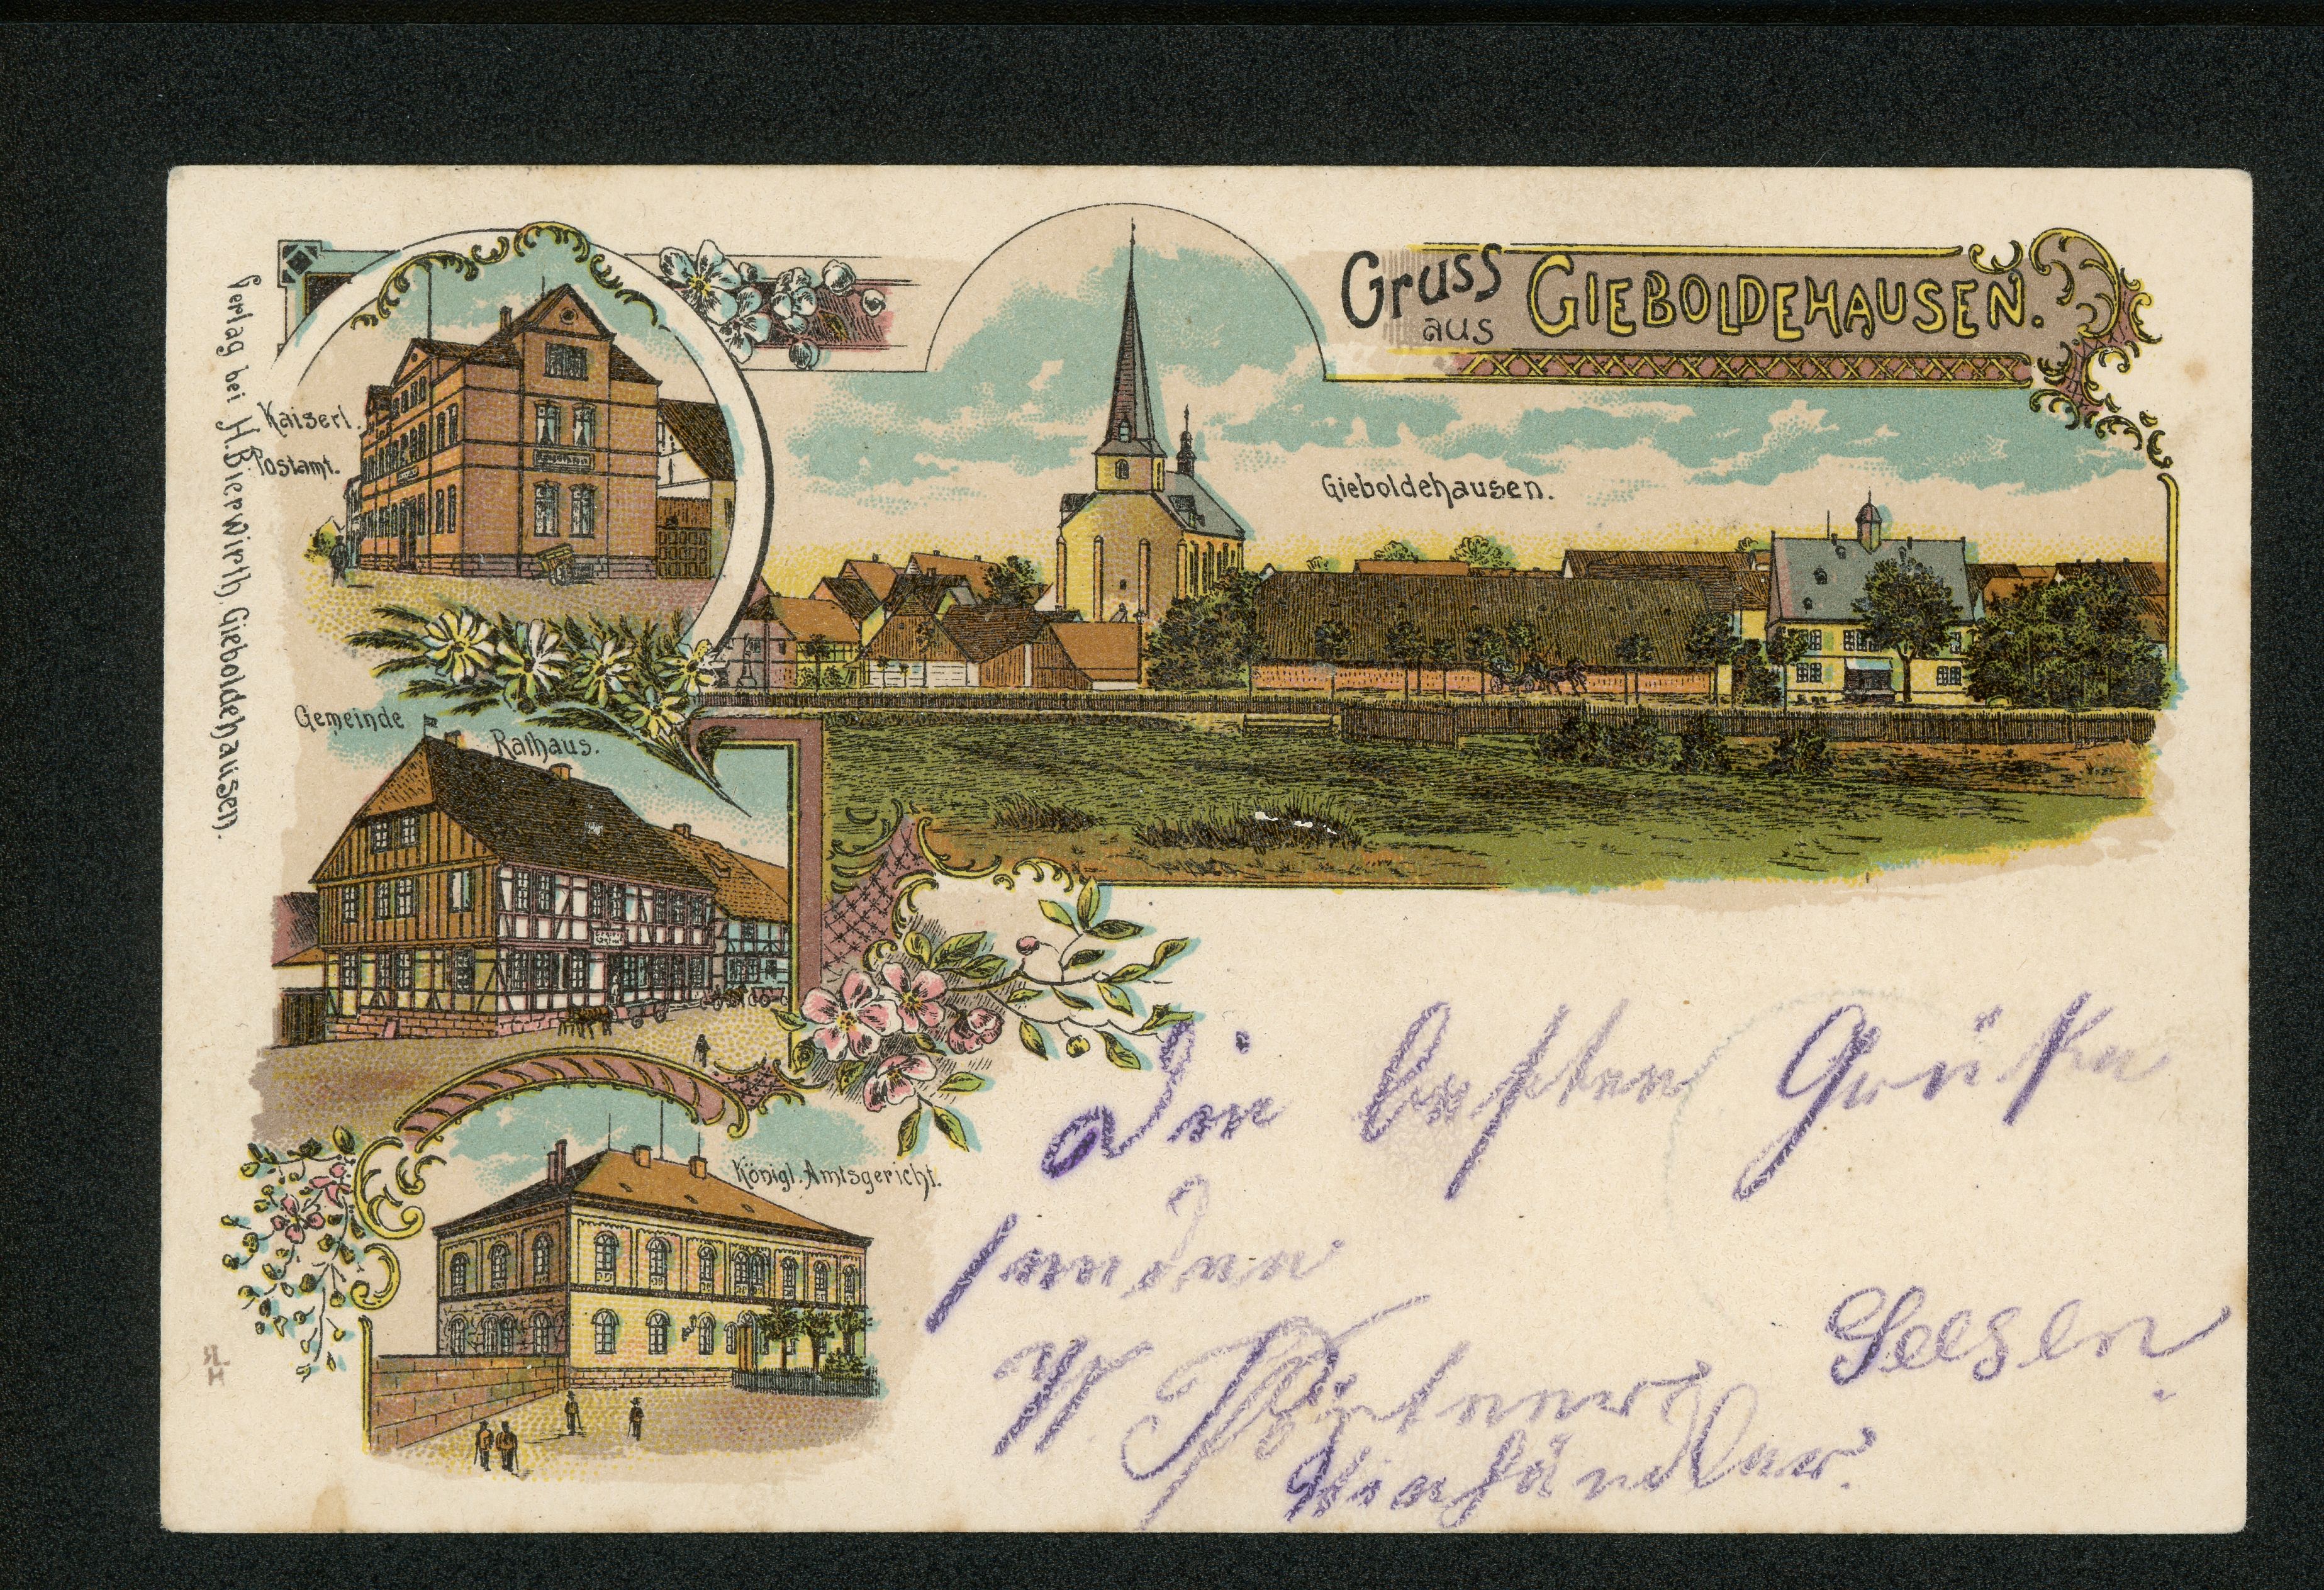 Gruss
aus
GIEBOLDEHAUSEN.
Kaiserl.
Postamt.
Gieboldehausen.
Verlag bei H. Bierwirth, Gieboldehausen.
Gemeinde
Rathaus.
Königl. Amtsgericht.
Die besten Grüße
senden
Seesen.
W.